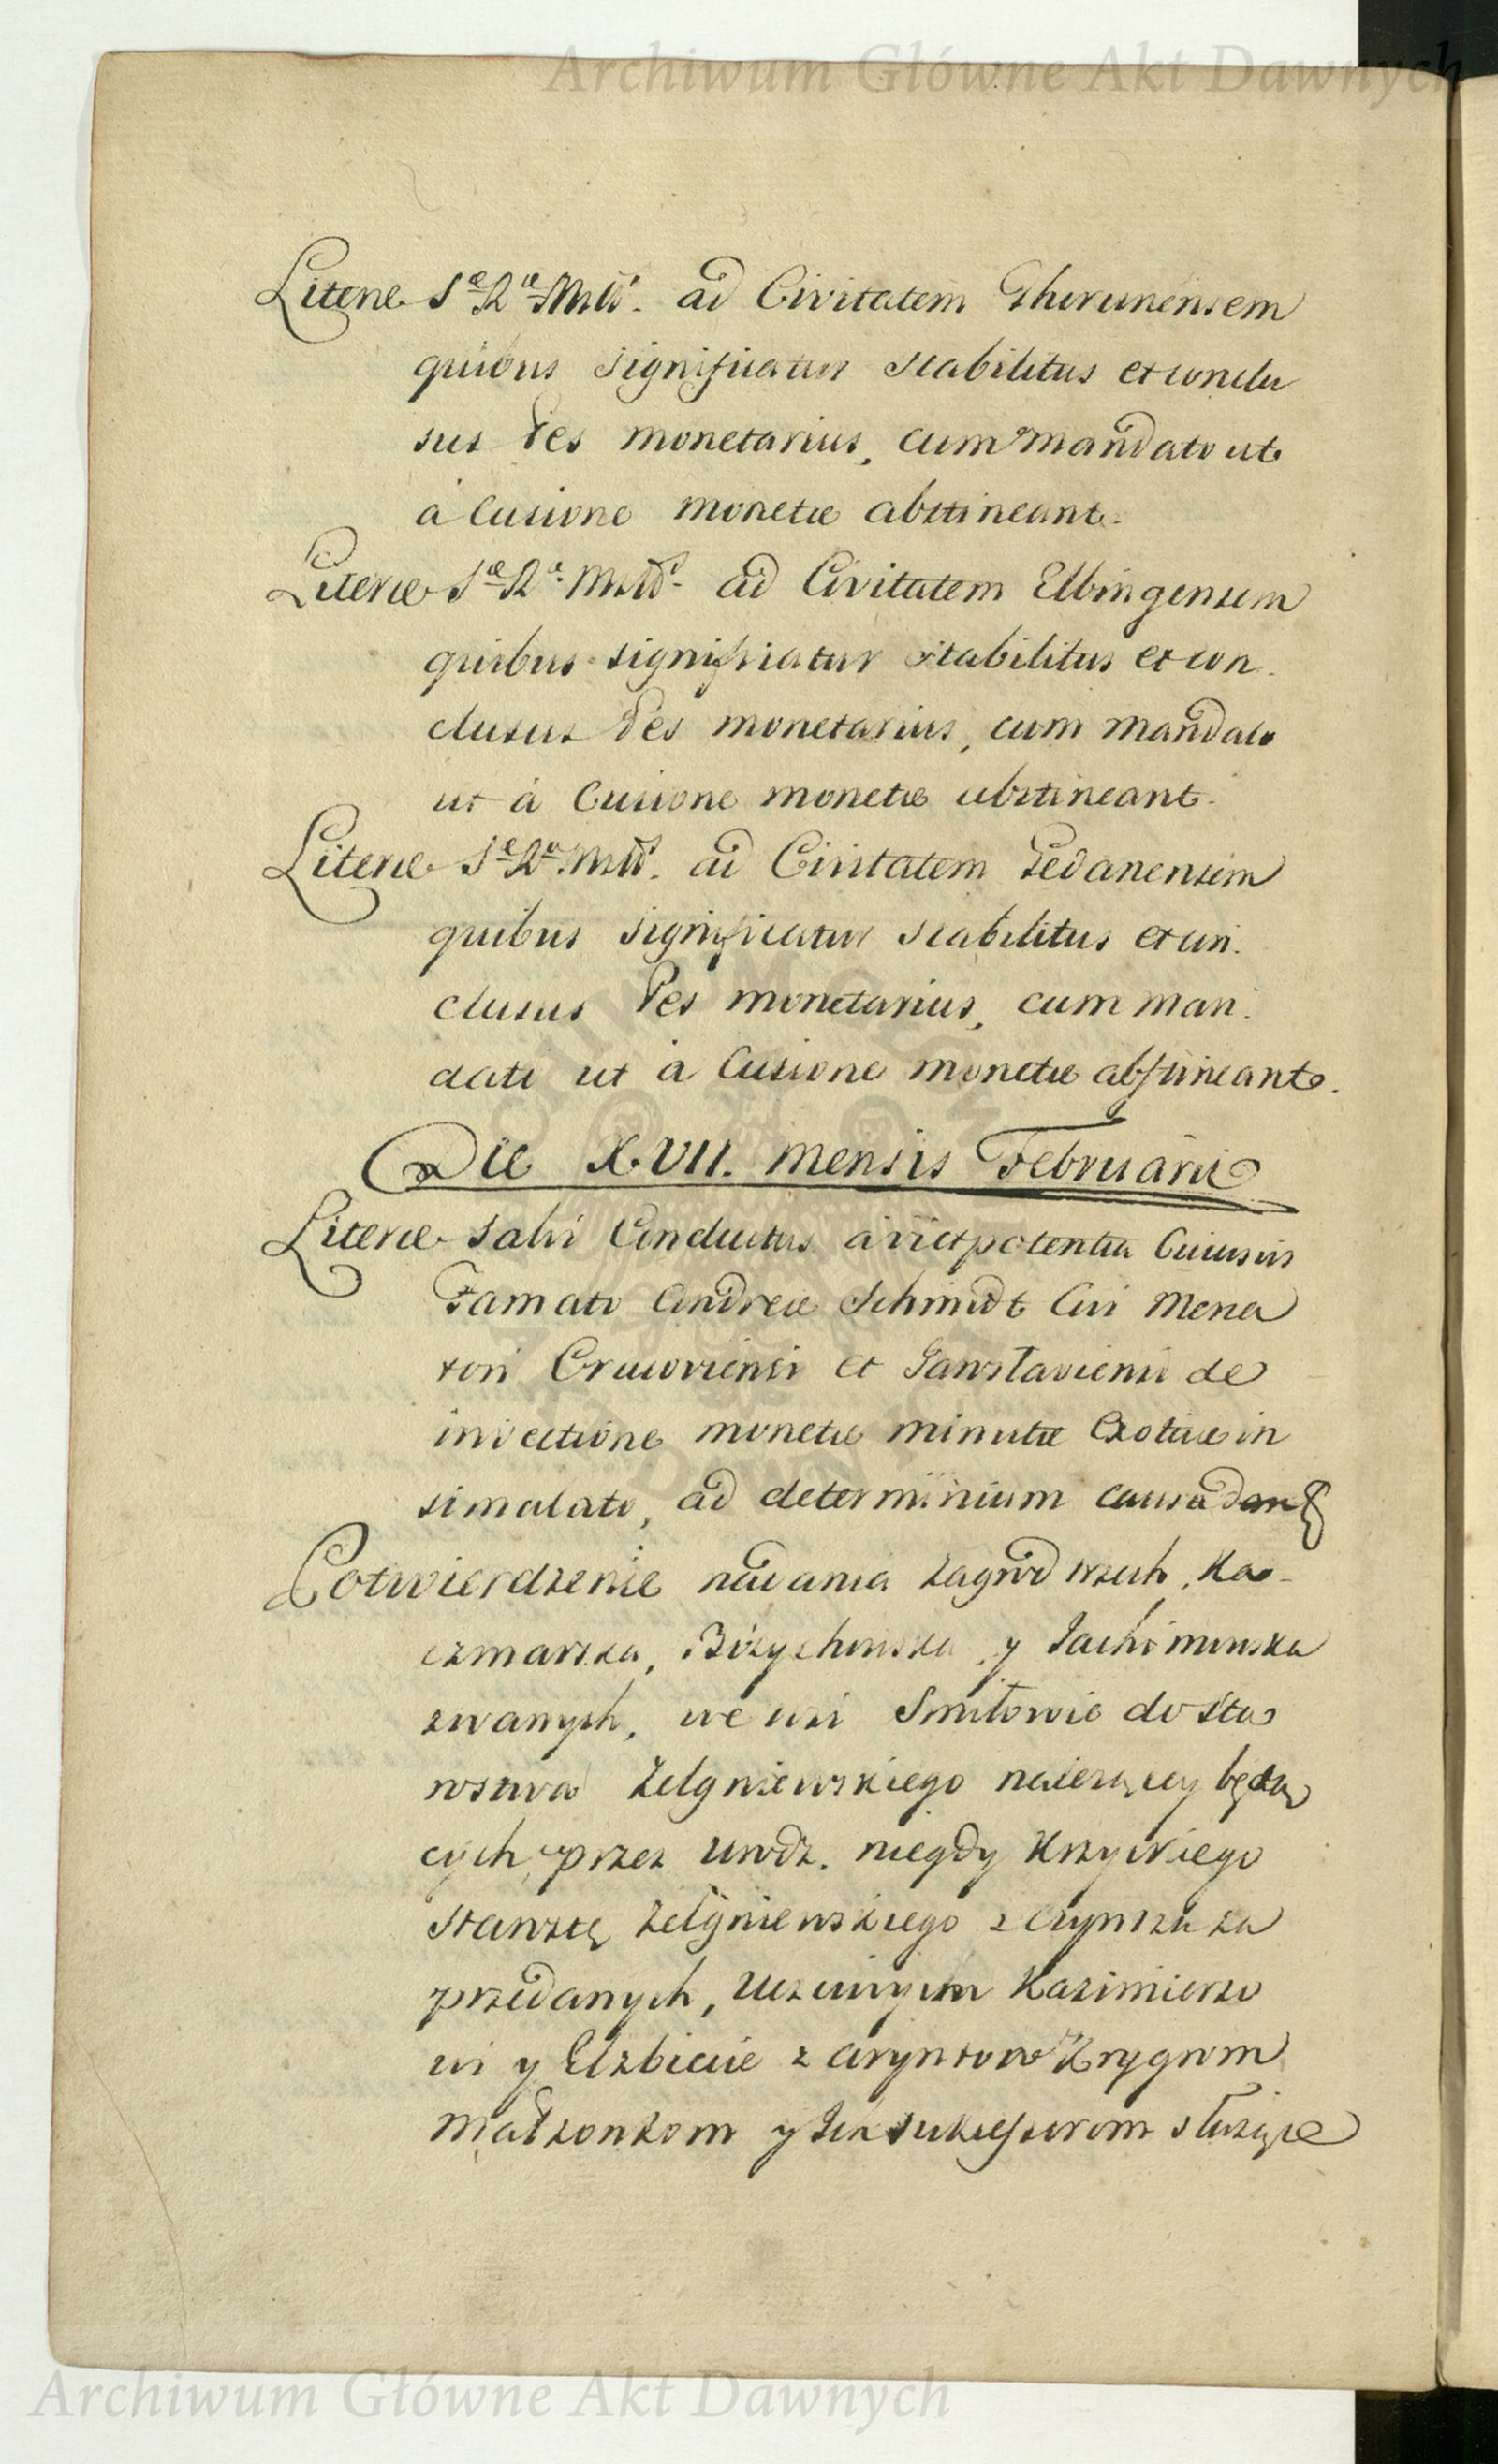 Archiwum Główne Akt Dawnych
Literæ S̲æ R̲æ Mttis. ad Civitatem Thorunensem
quibus significatur stabilitus et conclu
sus Pes monetarius, cum mandato ut
à Cusione monetæ abstineant.
Literæ Sæ Ræ Mttis. ad Civitatem Elbingensem
quibus significatur stabilitus et con.
clusus Pes monetarius, cum mandato
ut à Cusione monetæ abstineant.
Literæ Sæ Ræ Mttis. ad Civitatem Gedanensem
quibus significatur stabilitus et con.
clusus Pes monetarius, cum man.
dato ut à Cusione monetæ abstineant.
Die XVII. mensis Februarii
Literæ salvi Conductus à vi et potentia Cuiusvis
Famato Andreæ Schmidt Civi Merca
tori Cracoviensi et Jaroslaviensi de
invectione monetæ minutæ Exoticæ in
simulato, ad determinium causæ
Potwierdzenie nadania zagrod trzech, Ka-
czmarska, y Jachimowska
zwanych, we wsi Smiłowie do Sta
rostwa Zelgniewskiego nalezącey będą
cych, przez Urodz. niegdy Krzyckiego
Starostę Zelgniewskiego z Czynszu za
przedanych, Uczciwym Kazimierzo
wi y Elzbiecie z Małzonkom y Ich sukcessorom służące
Archiwum Główne Akt Dawnych